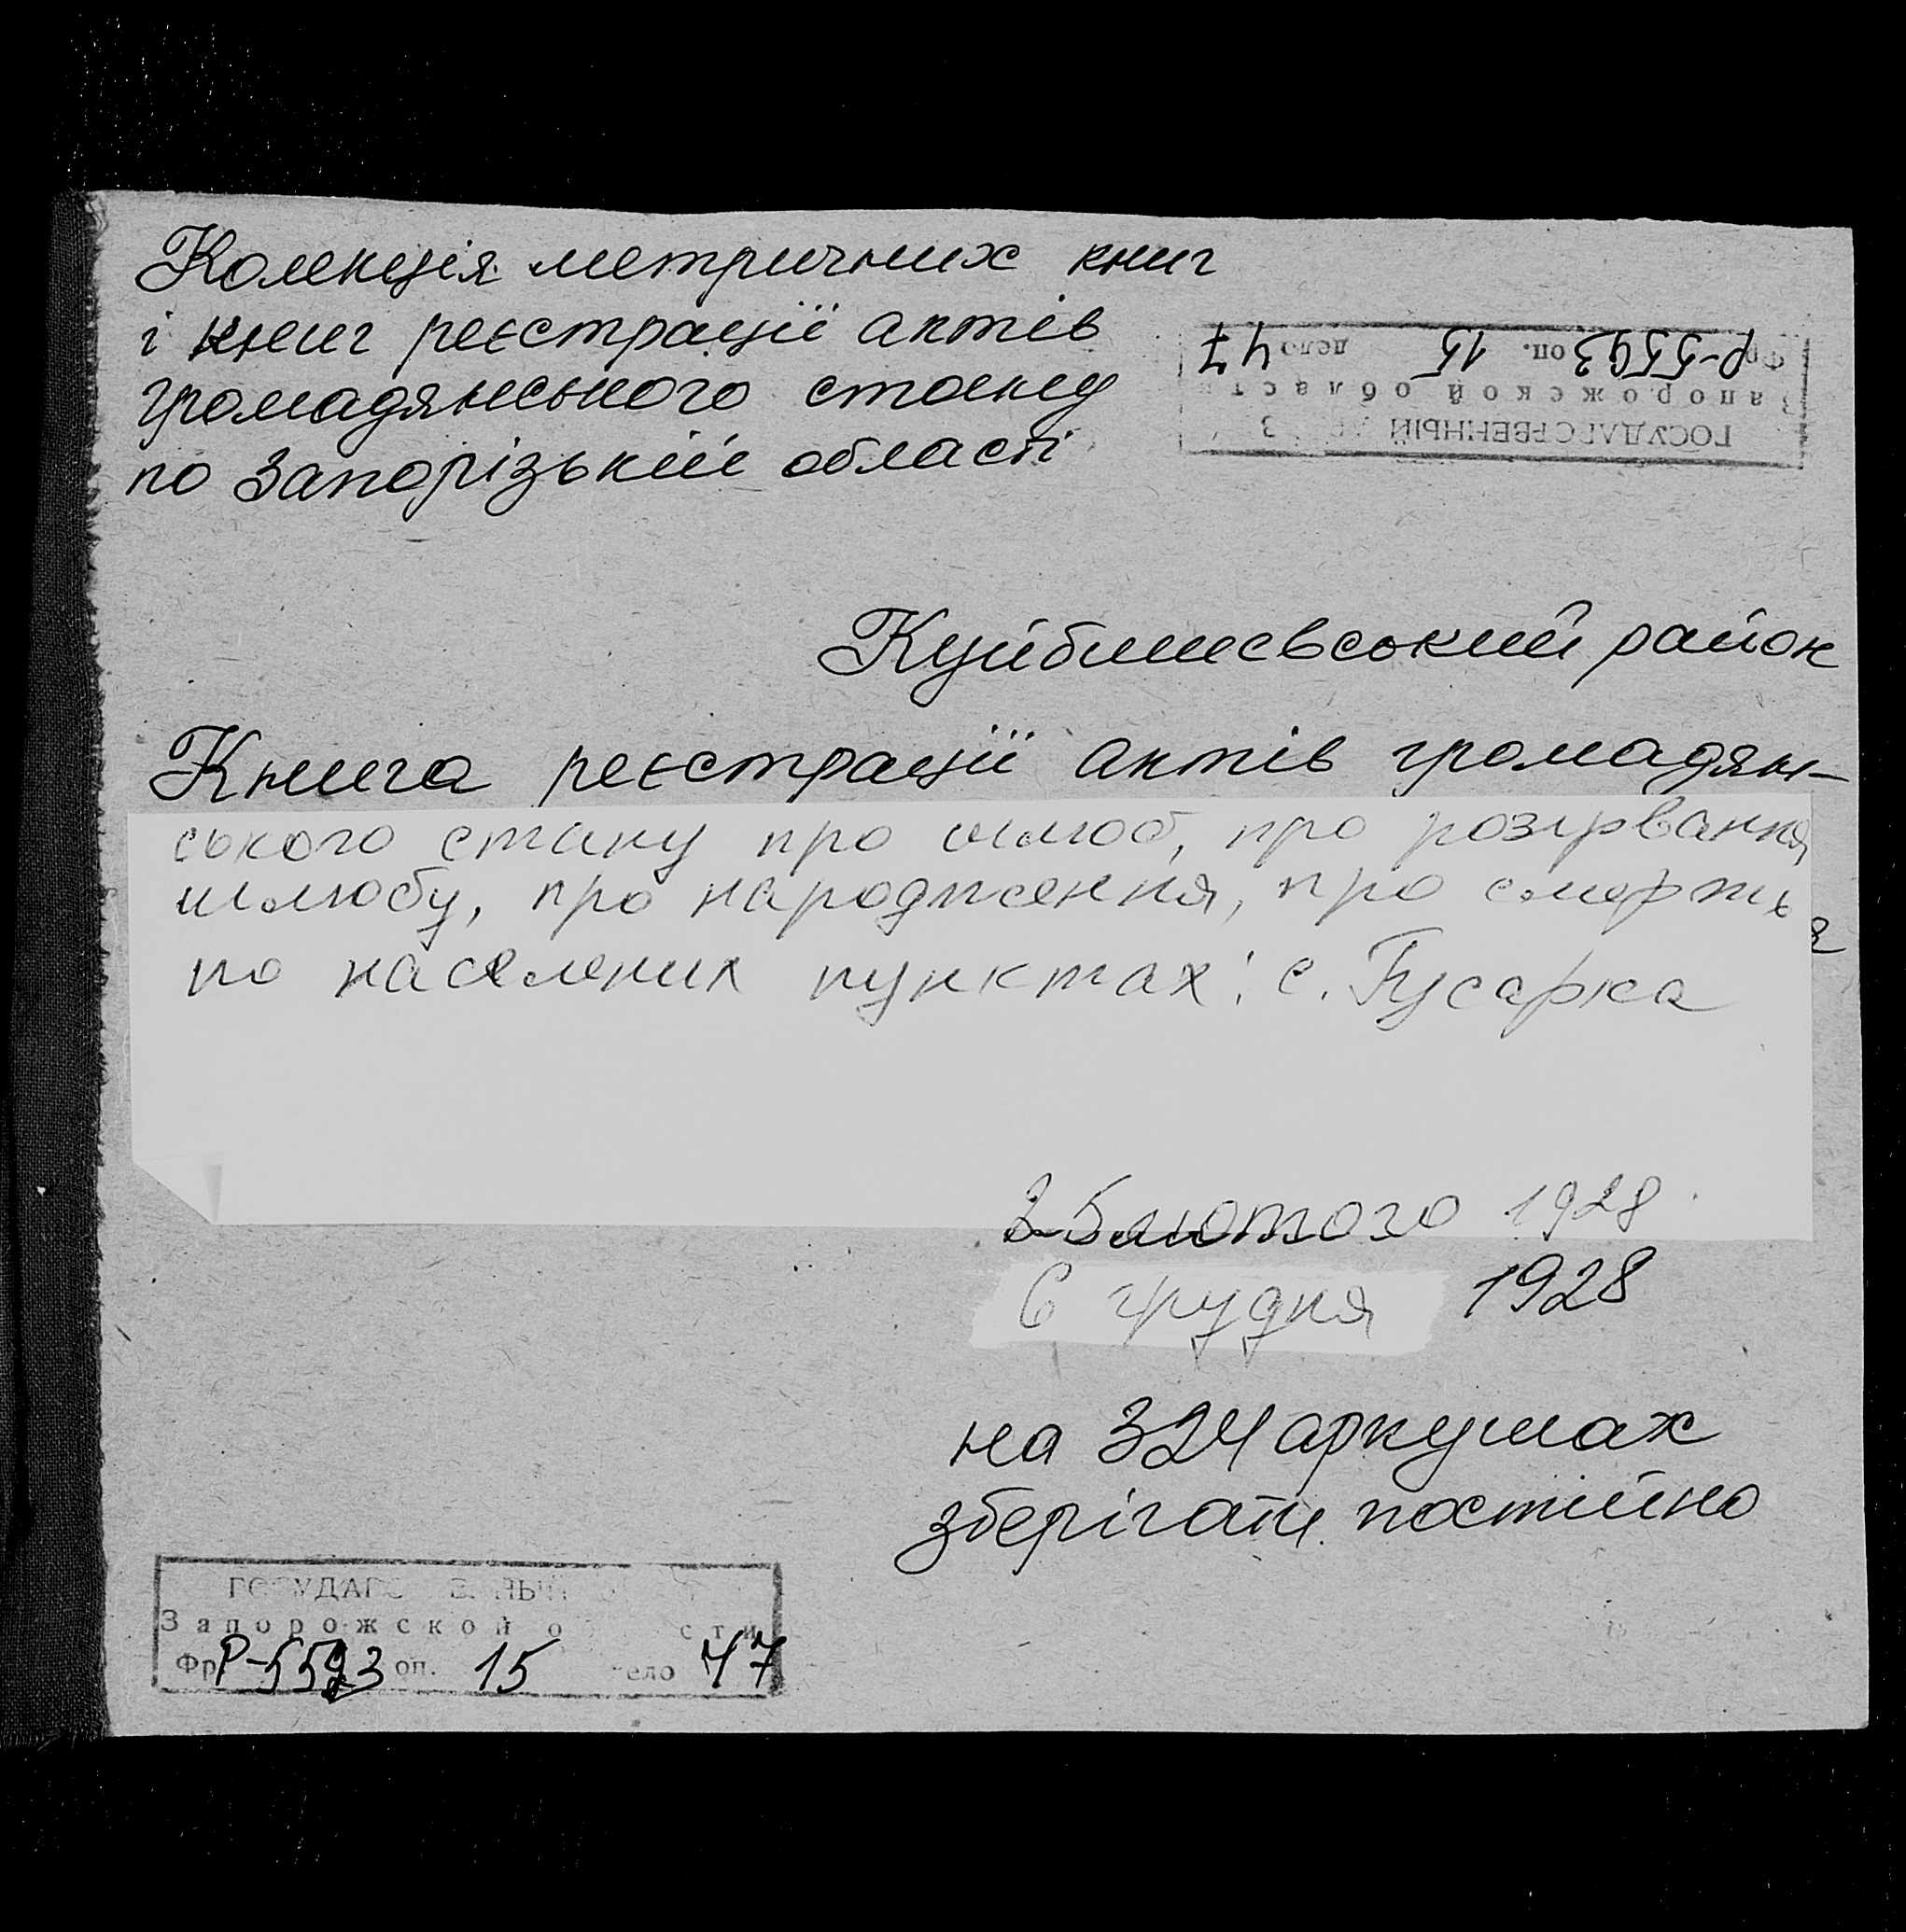 Колекція метричних книг
і книг реєстрації актів
громадянського стану
по Запорізькій області
Фр Р-5593 оп. 15 дело 47
Запорожской област
ГОСУДАРСТВЕННЫЙ
Куйбишевський район
Книга реєстрації актів громадян-
ського стану про шлюб, про розірвання
шлюбу, про народження, про смерть
по населених пунктах: с. Гусарка
25 лютого 1928
6 грудня 1928
на 324 аркушах
зберігати постійно
Запорожской о сти
Фр Р-5593 оп. 15 дело 47